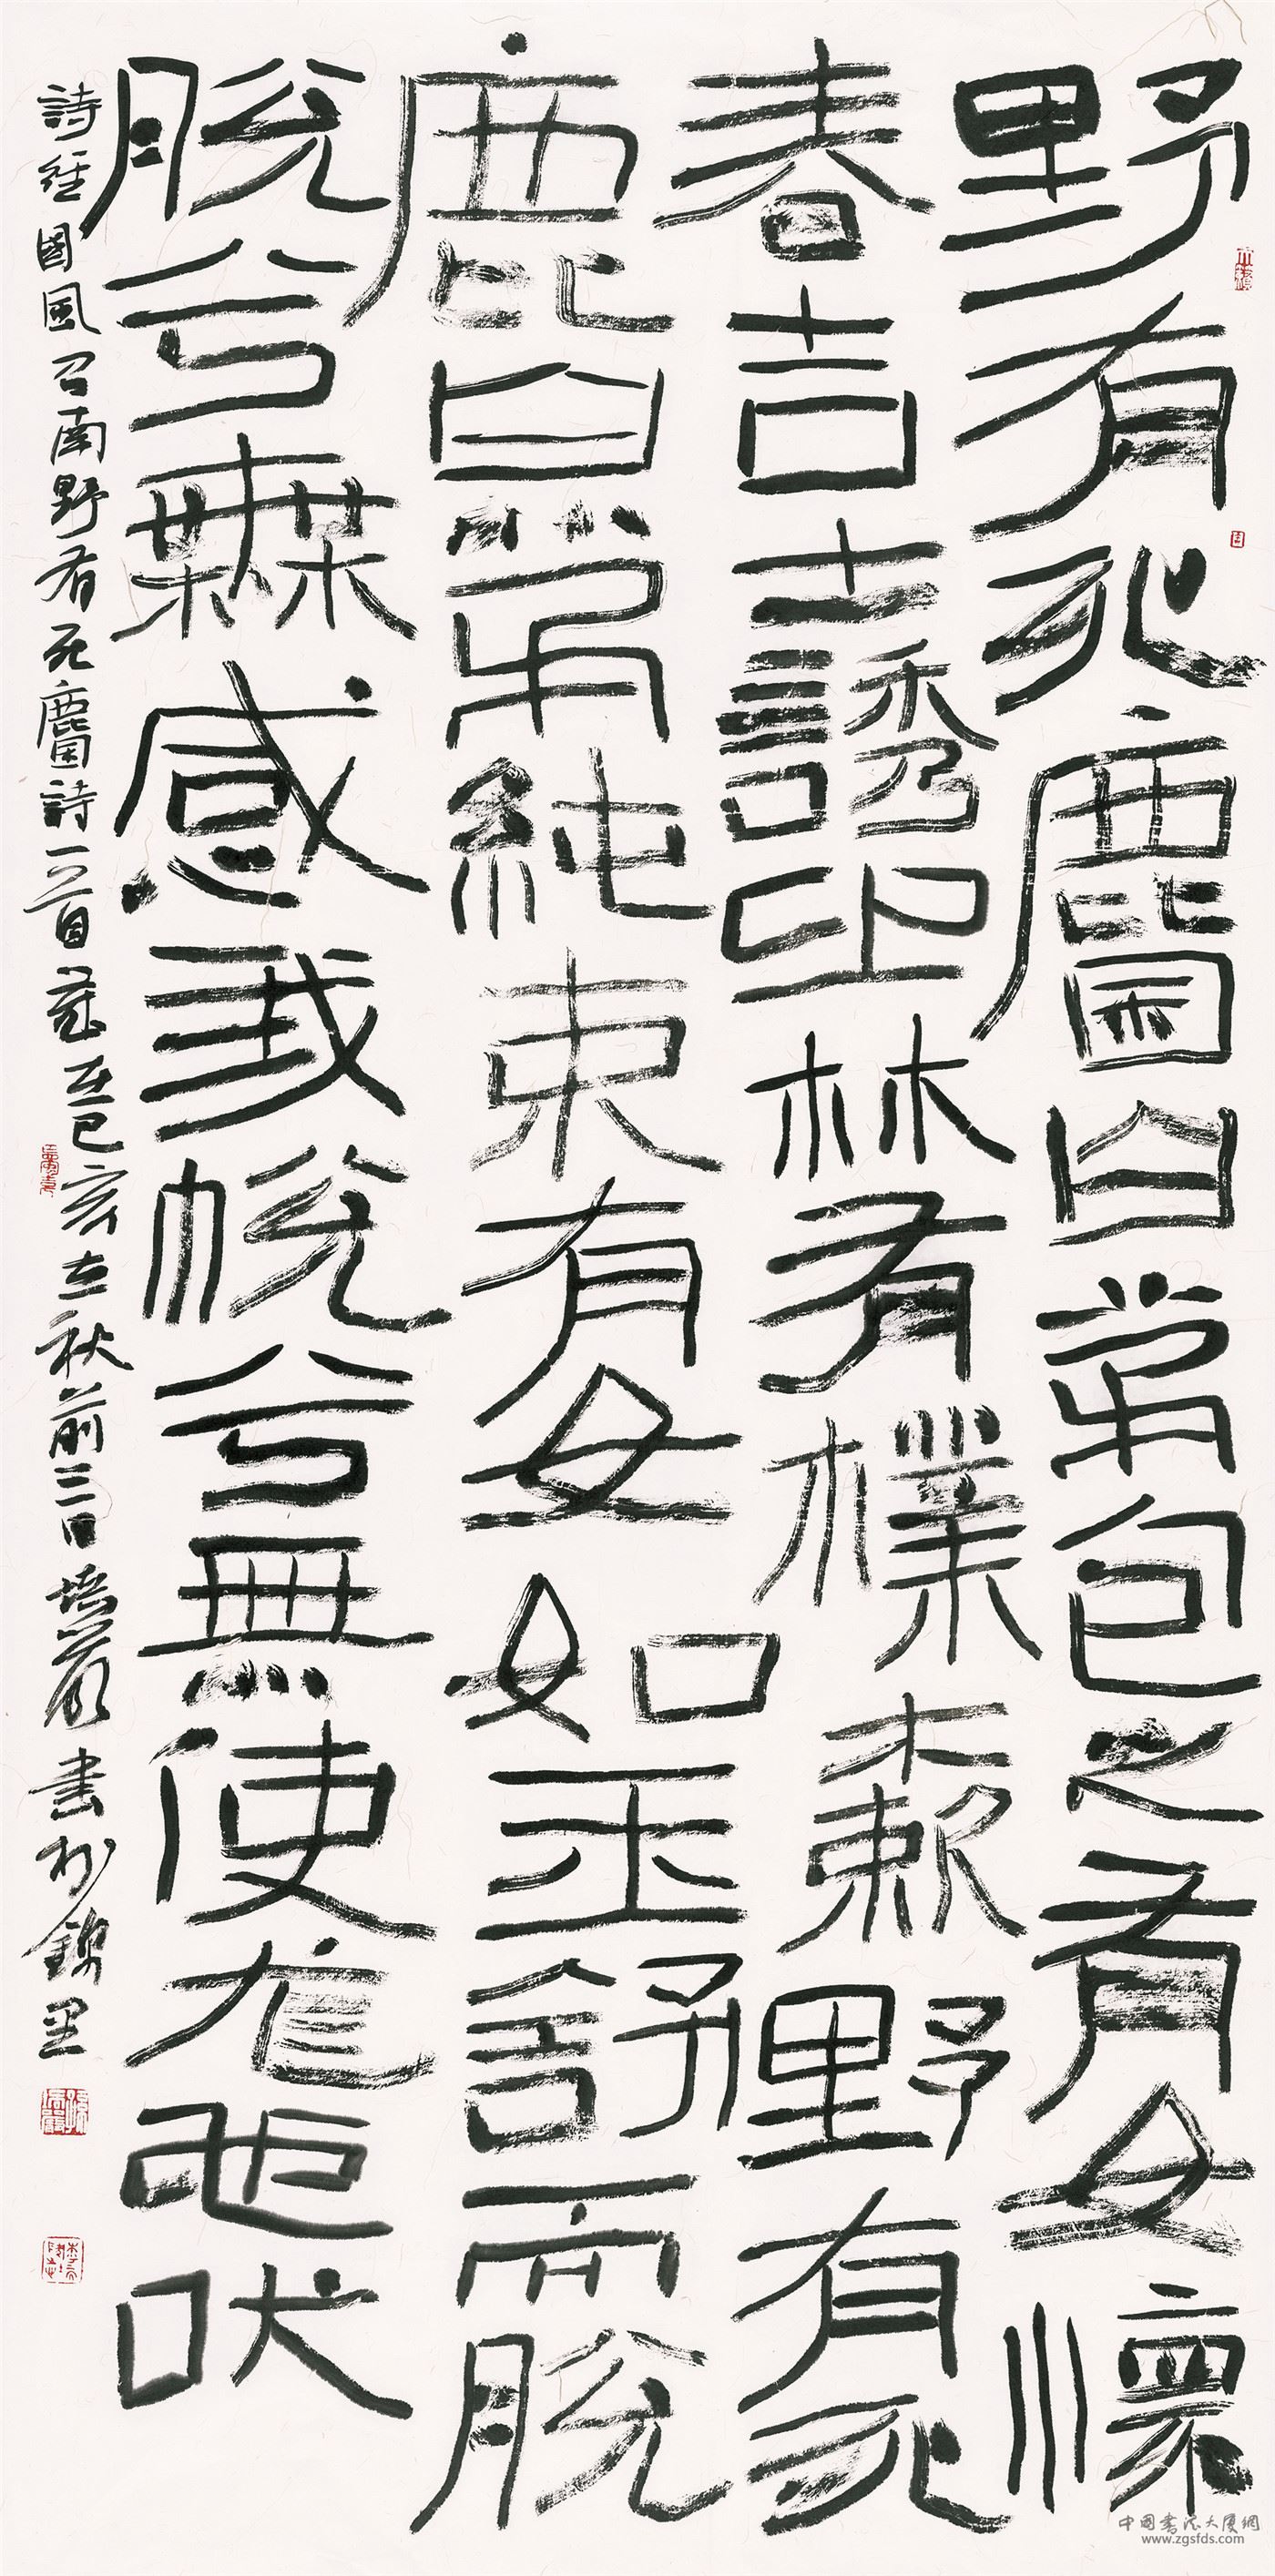 野有死麕白茅包之有女懷
春吉士誘之林有樸樕野有死
鹿白茅純束有女如玉舒而脫
脫兮無感我帨兮無使尨也吠
詩經國風召南野有死麕詩一首歲在己亥立秋前三日培書於錦里
中國書法大厦網
www.zgsfds.com